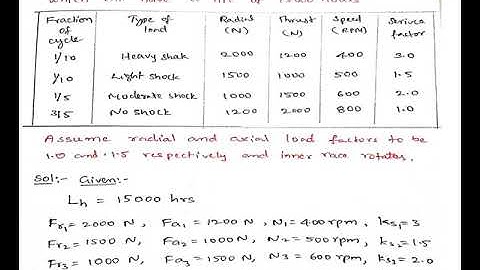 Fraction of cycle Type of load Radial (N) Thrust (N) Speed (RPM) Serivce factor
1/10 Heavy shak 2000 1200 400 3.0
1/10 Light shock 1500 1000 500 1.5
1/5 Moderate shock 1000 1500 600 2.0
3/5 No shock 1200 2000 800 1.0
Assume radial and axial load factors to be
1.0 and 1.5 respectively and inner race rotates.
Sol:- Given:-
Lh = 15000 hrs
Fr1 = 2000 N, Fa1 = 1200 N, N1 = 400 rpm, ks1 = 3
Fr2 = 1500 N, Fa2 = 1000 N, N2 = 500 rpm, ks1 = 1.5
Fr3 = 1000 N, Fa3 = 1500 N, N3 = 600 rpm, ks1 = 2.0